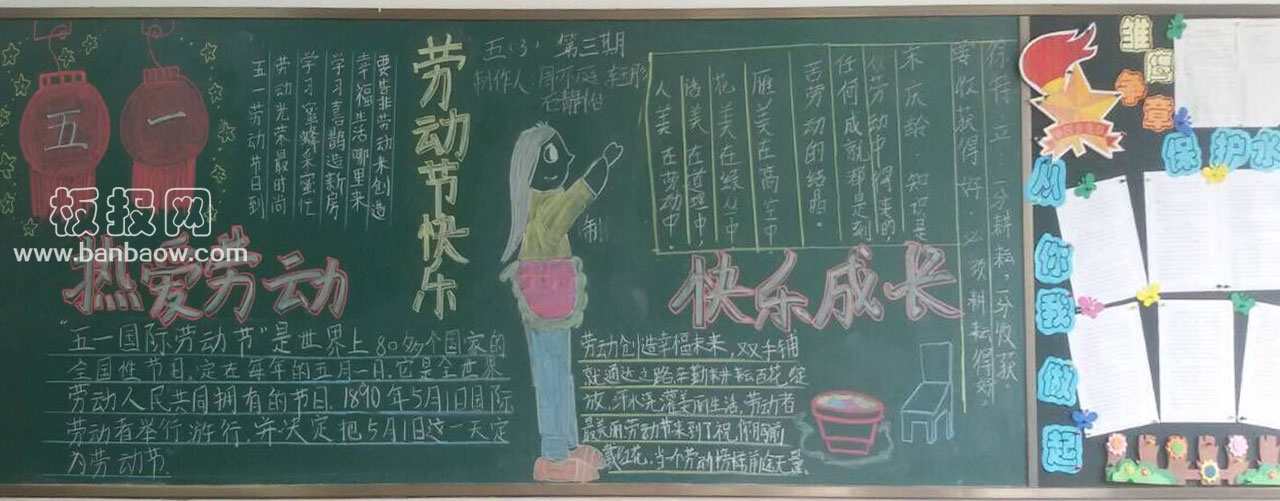 五 一
要靠非劳动来创造
幸福生活哪里来
学习喜鹊造新房
学习蜜蜂采蜜忙
劳动光荣最时尚
五一劳动节日到
劳动节快乐
五(3) 第三期
制作人
板报网
www.banbaow.com
热爱劳动
"五一国际劳动节"是世界上80多个国家的
全国性节日.定在每年的五月一日.它是全世界
劳动人民共同拥有的节日.1890年5月1日国际
劳动者举行游行,并决定把5月1日这一天定
为劳动节.
制
快乐成长
要收获得好.必须耕耘得好.
一分耕耘,一分收获.
知识是
从劳动中得来的,
任何成就都是刻
苦劳动的结晶.
雁美在高空中
花美在绿丛中
话美在道理中,
人美在劳动中.
劳动创造幸福未来,双手铺
就通达之路辛勤耕耘百花绽
放,汗水浇灌美丽生活,劳动者
最美丽劳动节来到了祝你胸前
戴红花,当个劳动榜样前途无量
雏鹰争章
保护水
从你我做起